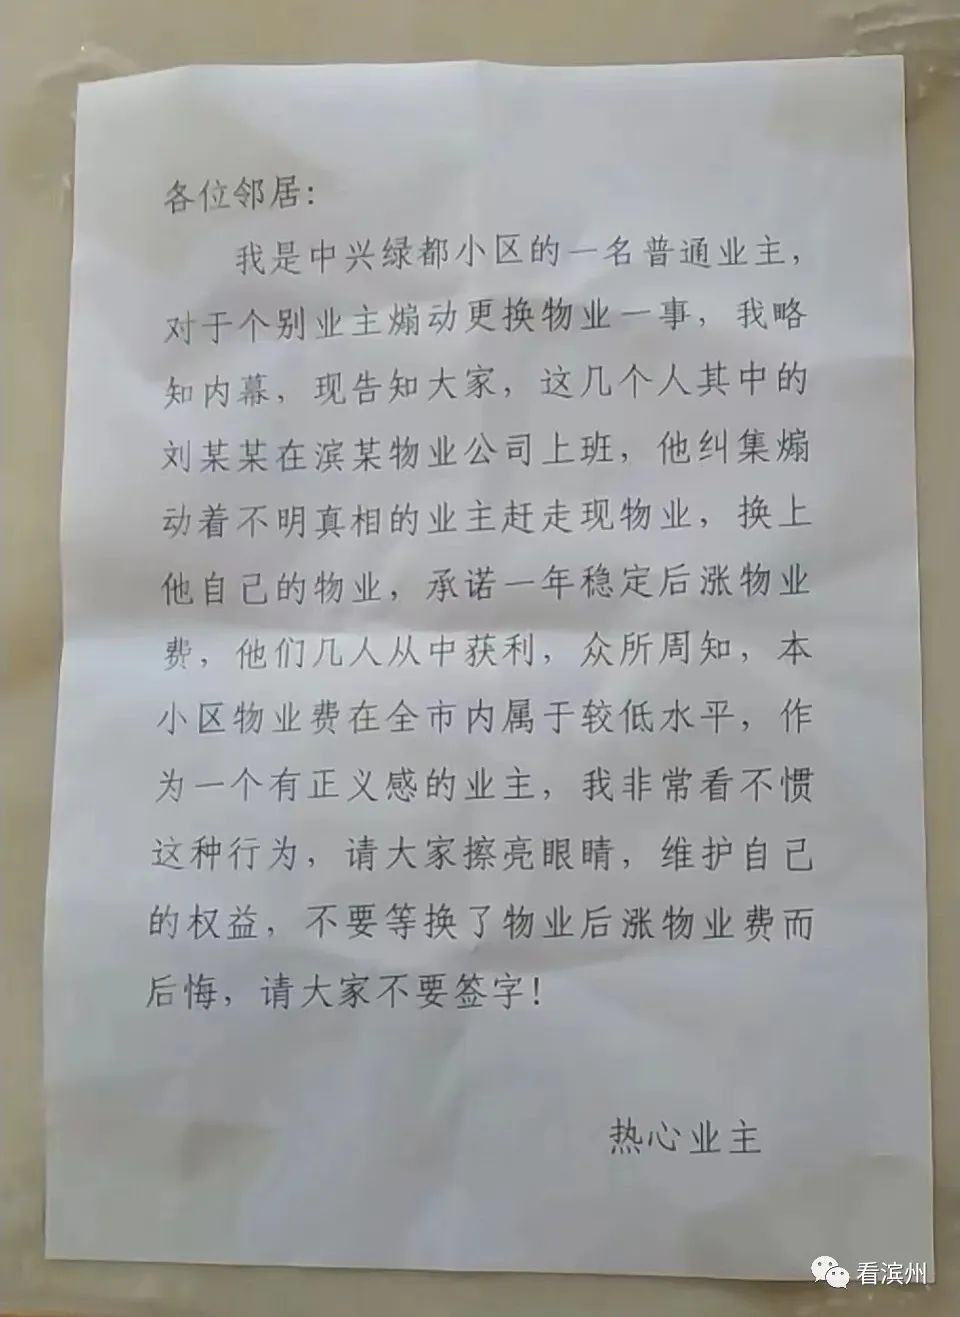 各位邻居：
我是中兴绿都小区的一名普通业主，
对于个别业主煽动更换物业一事，我略
知内幕，现告知大家，这几个人其中的
刘某某在滨某物业公司上班，他纠集煽
动着不明真相的业主赶走现物业，换上
他自己的物业，承诺一年稳定后涨物业
费，他们几人从中获利，众所周知，本
小区物业费在全市内属于较低水平，作
为一个有正义感的业主，我非常看不惯
这种行为，请大家擦亮眼睛，维护自己
的权益，不要等换了物业后涨物业费而
后悔，请大家不要签字！
热心业主
看滨州